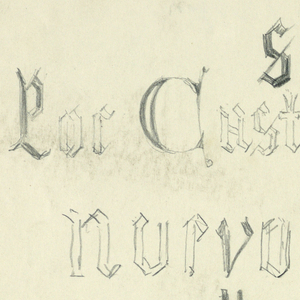 S
For Cust
nurvo